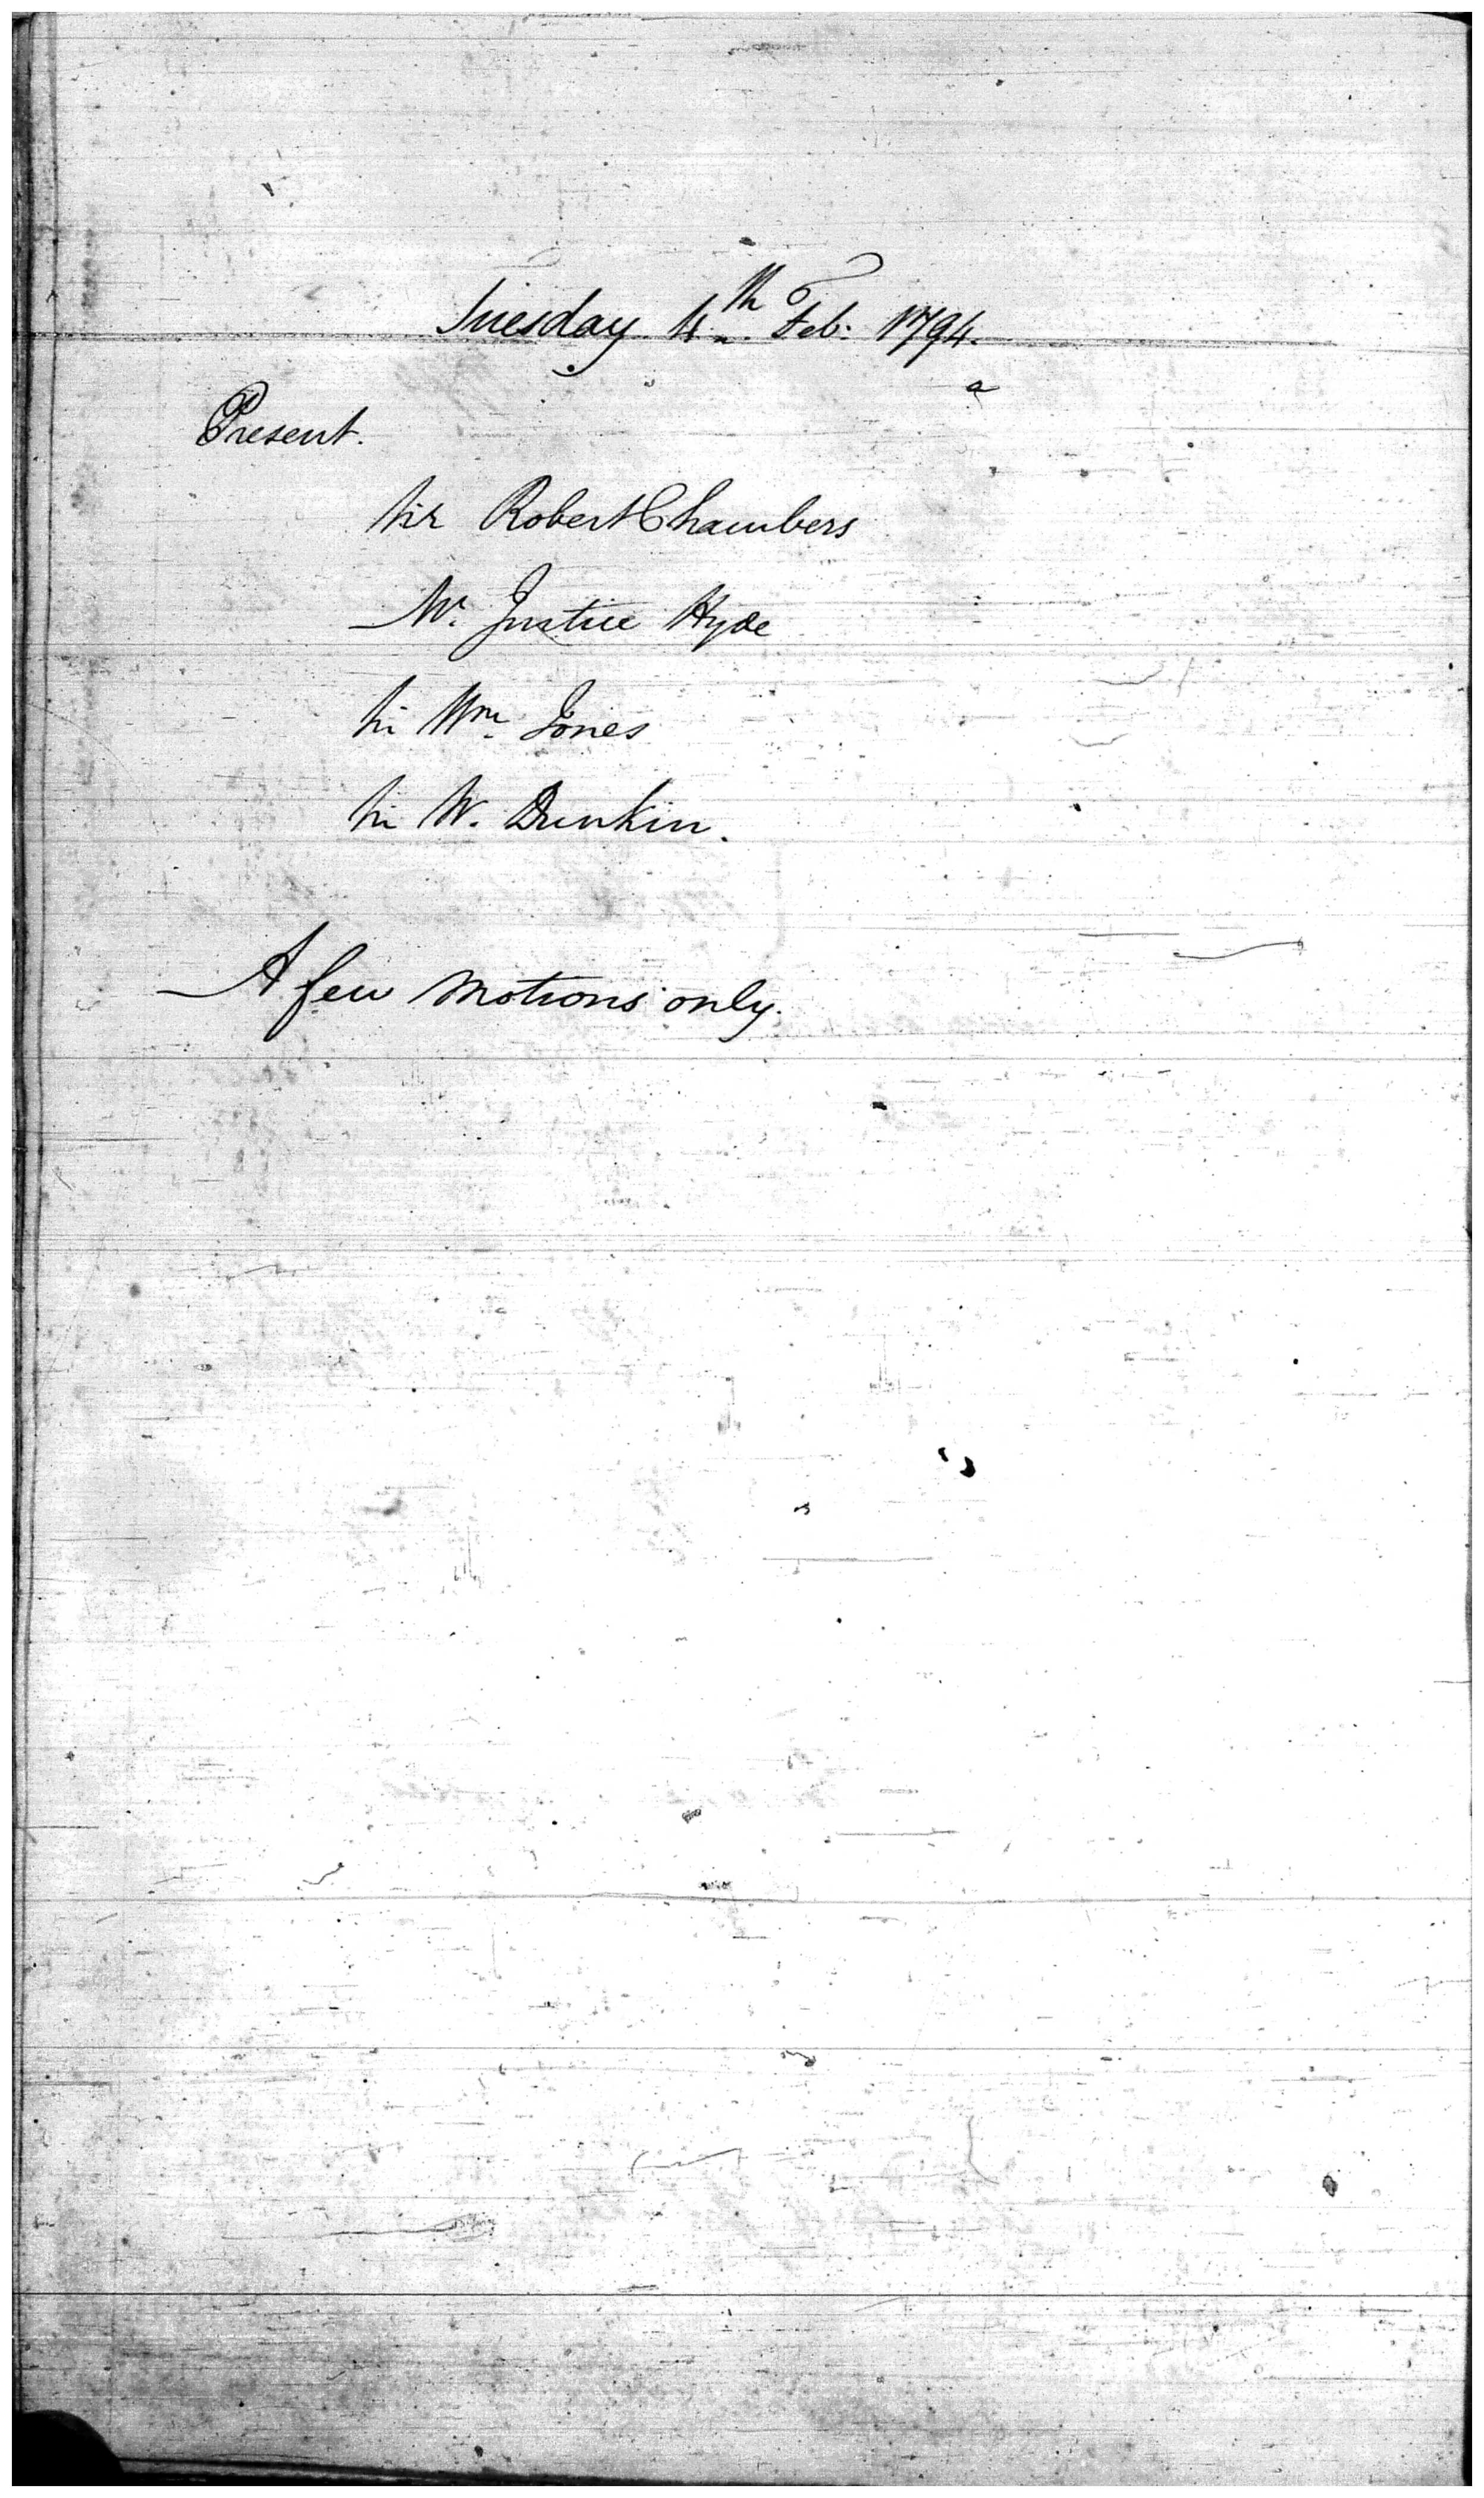 Tuesday 4th Feb: 1794.
Present.
Sir Robert Chambers
Mr. Justice Hyde
Sir Wm. Jones
Sir W. Dunkin.
A few motions only.